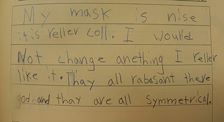 My mask is nise
it is reller coll. I would
Not change anething I reller
like it. Thay all rabasant there
god and thay are all symmetrical.